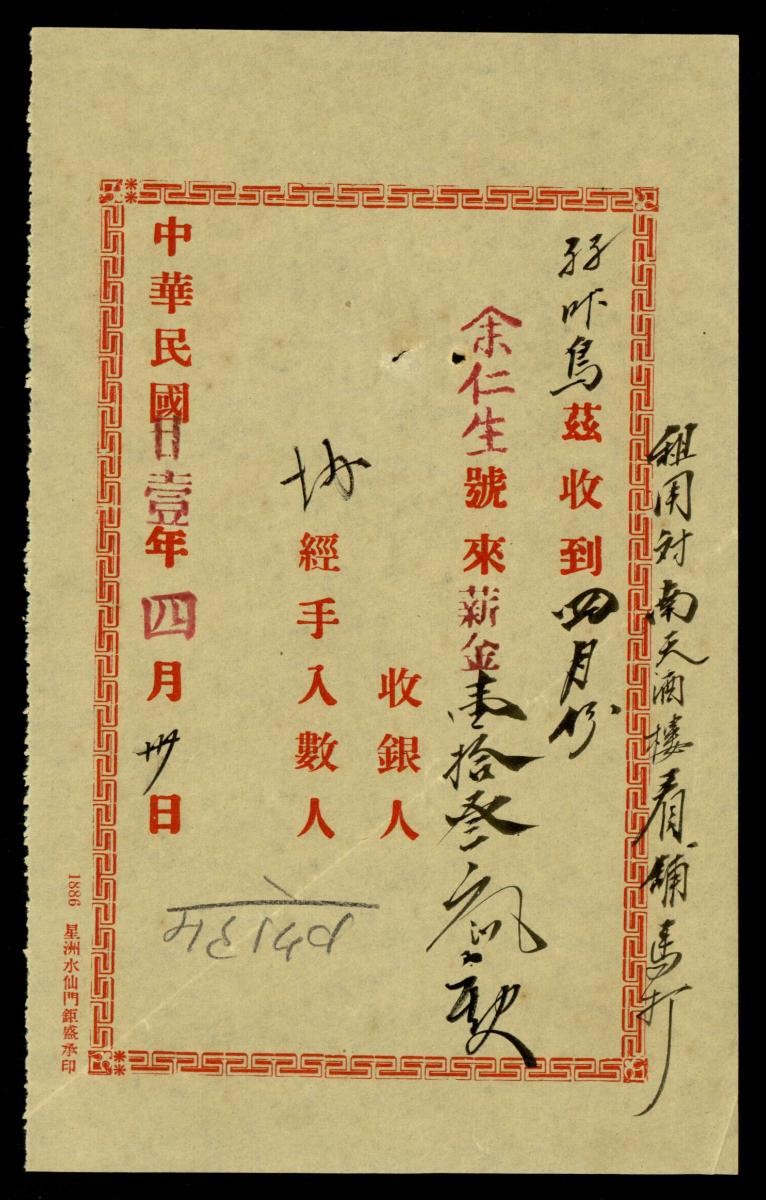 租用对南天酒樓看舖馬打
茲收到四月份
余仁生號來薪金壹拾叁
收銀人
經手入數人
中華民國廿壹年四月卅日
1886 星洲水仙門鉅盛承印